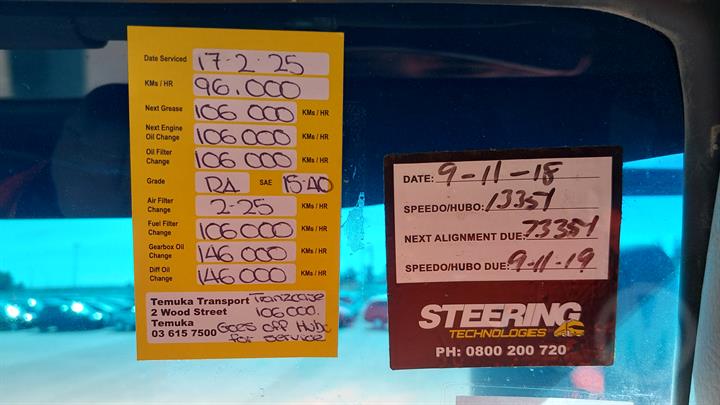 Date Serviced 17-2-25
KMs / HR 96.000
Next Grease 106 000 KMs / HR
Next Engine Oil Change 106 000 KMs / HR
Oil Filter Change 106 000 KMs / HR
Grade SAE 15-40
Air Filter Change 2-25 KMs / HR
Fuel Filter Change 106000 KMs / HR
Gearbox Oil Change 146 000 KMs / HR
Diff Oil Change 146 000 KMs / HR
Temuka Transport Tranzcase
2 Wood Street 106 000.
Temuka Goes off Hubo
03 615 7500 for service
DATE: 9-11-18
SPEEDO/HUBO: 13351
NEXT ALIGNMENT DUE: 73351
SPEEDO/HUBO DUE: 9-11-19
STEERING
TECHNOLOGIES
PH: 0800 200 720